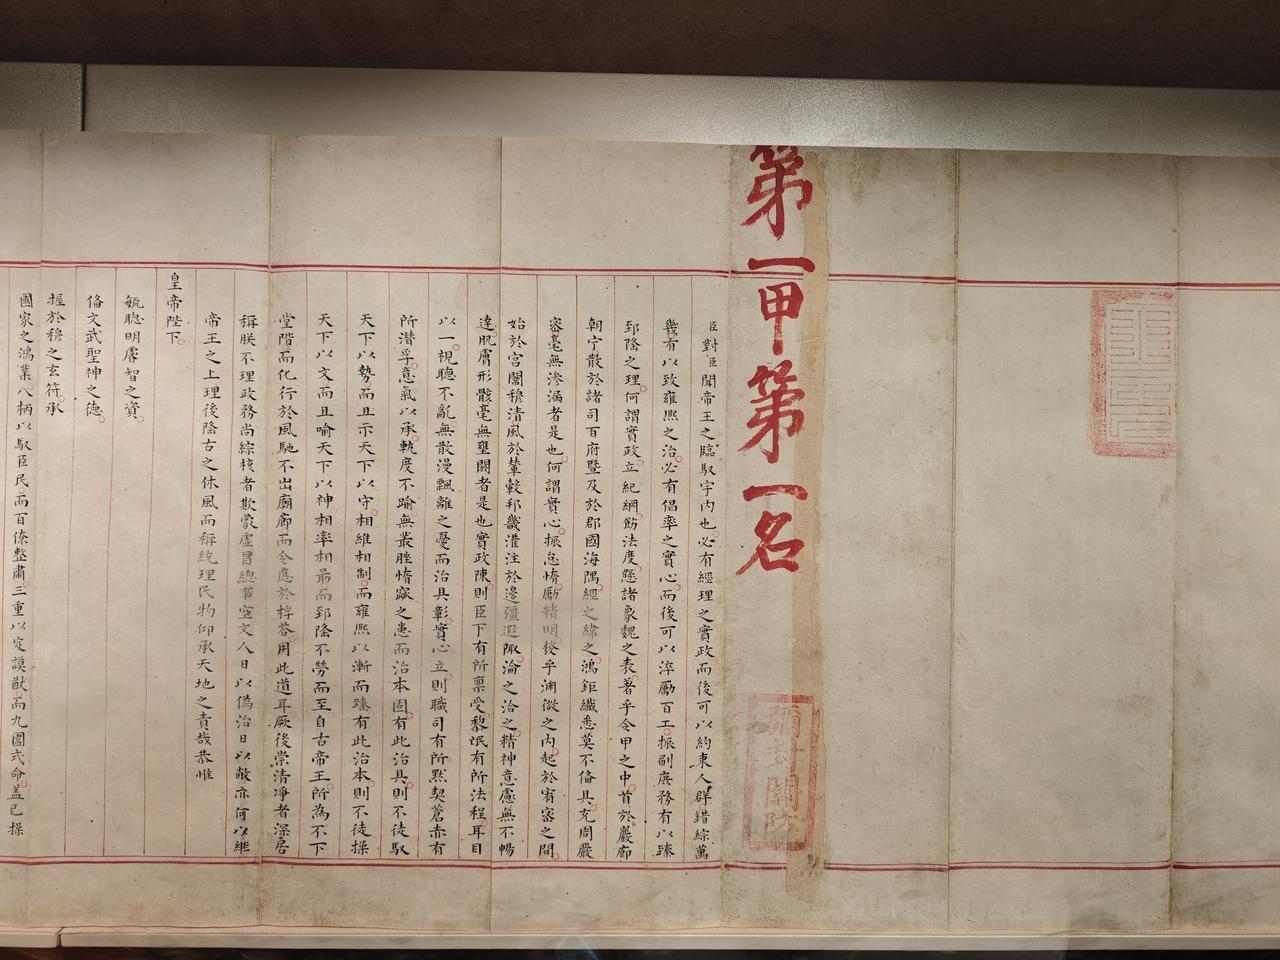 第一甲第一名
彌封關防
臣對臣聞帝王之臨馭宇內也必有經理之實政而後可以約束人群錯綜萬
幾有以致雍熙之治必有倡率之實心而後可以淬勵百工振刷庶務有以臻
郅隆之理何謂實政立紀綱飭法度懸諸象魏之表著乎令甲之中首於嚴廊
朝宁散於諸司百府暨及於郡國海隅經之緯之鴻鉅纖悉莫不俻具充周嚴
密毫無滲漏者是也何謂實心振怠惰勵精明發乎淵微之內起於宥密之間
始於宮闈穆清風於輦轂邦畿灌注於邊疆遐陬淪之洽之精神意慮無不暢
達肌膚形骸毫無壅閼者是也實政陳則臣下有所禀受黎氓有所法程耳目
以一視聽不亂無散漫飄離之憂而治具彰實心立則職司有所默契蒼赤有
所潛孚意氣以承軌度不踰無叢脞惰窳之患而治本固有此治具則不徒馭
天下以勢而且示天下以守相維相制而雍熙以漸而臻有此治本則不徒操
天下以文而且喻天下以神相率相最而郅隆不勞而至自古帝王所為不下
堂階而化行於風馳不出廟廊而令應於桴荅用此道耳厥後崇清凈者深居
稱朕不理政務尚綜核者欺蒙虛冒總事空文人日以偽治日以敝亦何以継
帝王之上理後隆古之休風而稱統理民物仰承天地之責哉恭惟
皇帝陛下
毓聰明睿智之資
俻文武聖神之德
握於穆之玄符承
國家之鴻業八柄以馭臣民而百僚整肅三重以定謨猷而九圍式命蓋已操